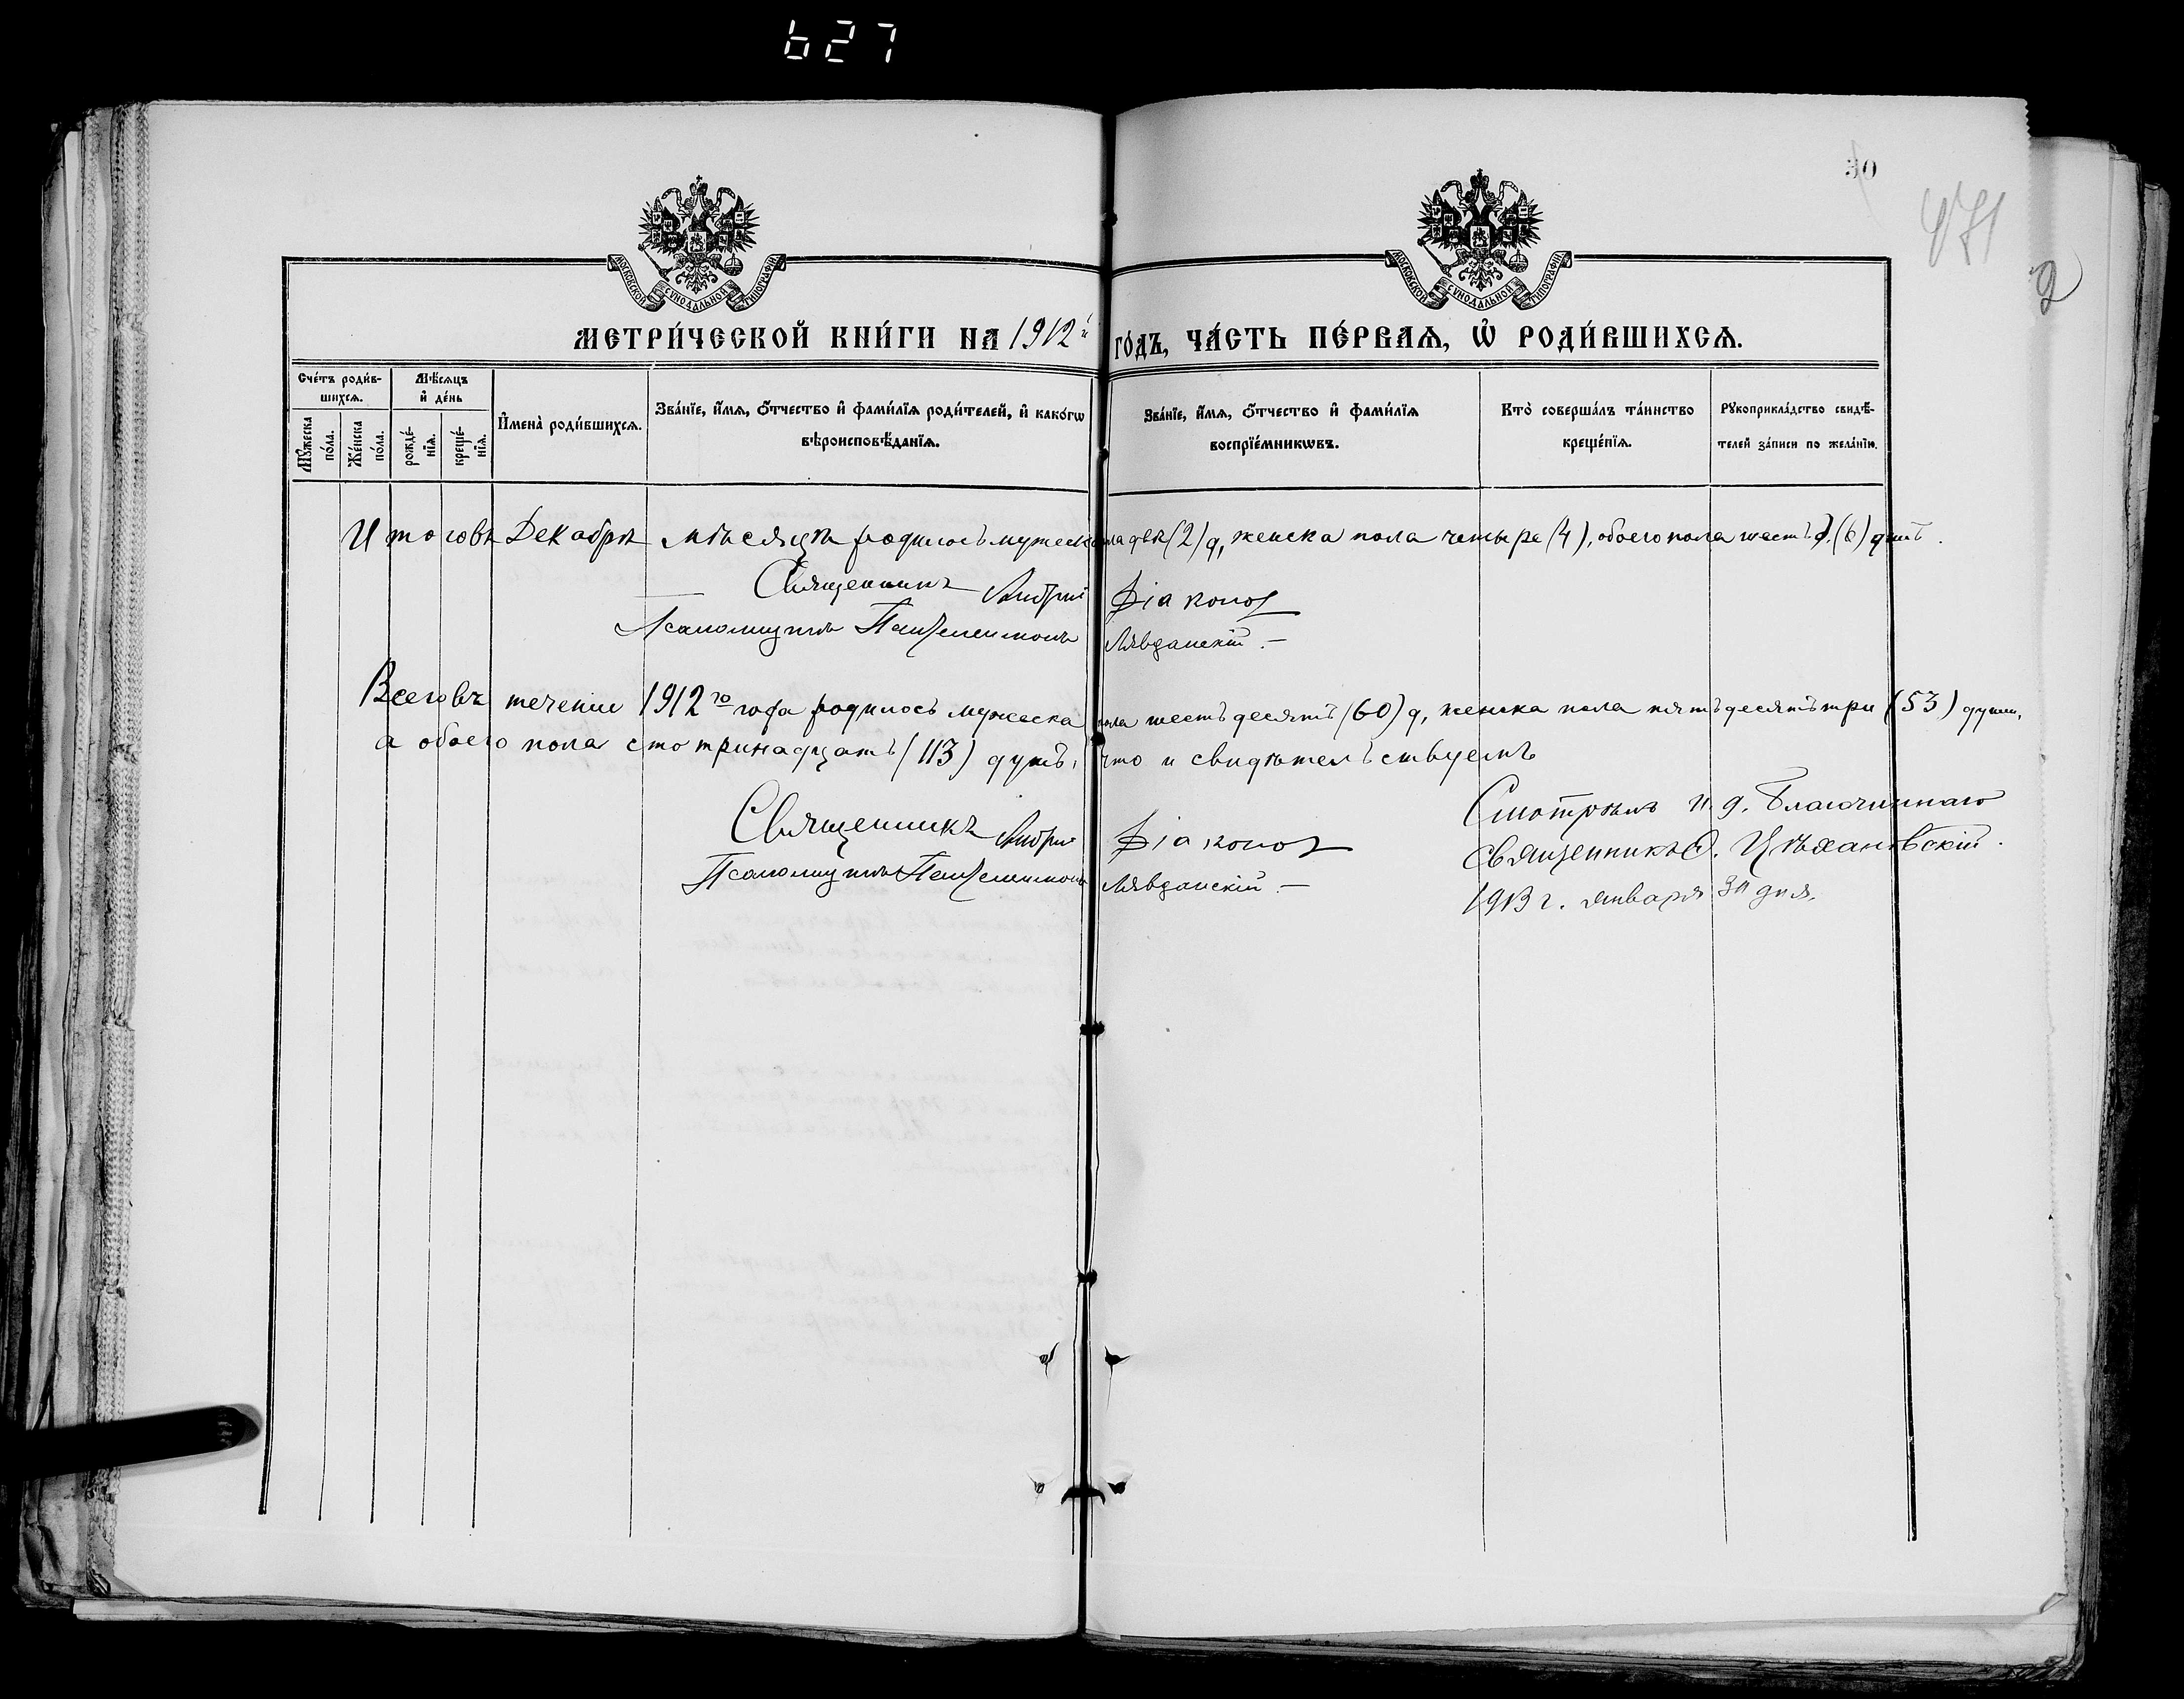 627
30
471
2
МОСКОВСКОЙ СѴНОДАЛЬНОЙ ТИПОГРАФІИ
МОСКОВСКОЙ СѴНОДАЛЬНОЙ ТИПОГРАФІИ
МЕТРИ́ЧЕСКОЙ КНИ́ГИ НА 1912й ГО́ДЪ, ЧА́СТЬ ПЕ́РВАѦ, Ѽ РОДИ́ВШИХСѦ.
Сче́тъ роди́вшихсѧ.
Мꙋ́жеска по́ла.
Же́нска по́ла.
Мѣ́сѧцъ и҆ де́нь
рожде́нїѧ.
креще́нїѧ.
И҆мена̀ роди́вшихсѧ.
Зва́нїе, и҆́мѧ, ѻ҆́тчество и҆ фами́лїѧ роди́телей, и҆ како́гѡ вѣроисповѣ́данїѧ.
Зва́нїе, и҆́мѧ, ѻ҆́тчество и҆ фами́лїѧ воспрїе́мникѡвъ.
Кто̀ соверша́лъ та́инство креще́нїѧ.
Рꙋкоприкла́дство свидѣ́телей за́писи по жела́нїю.
Итого въ Декабрѣ мѣсяцѣ родилось мужеска пола двѣ (2) д, женска пола четыре (4), обоего пола шесть (6) душъ.
Священникъ Андрей Діаконов
Псаломщикъ Пантелеимонъ Лявданскій.—
Всего въ теченіи 1912го года родилось мужеска пола шестьдесятъ (60) д, женска пола пятьдесятъ три (53) души,
а обоего пола сто тринадцать (113) душъ, что и свидѣтельствуемъ
Священникъ Андрей Діаконов
Псаломщикъ Пантелеимонъ Лявданскій.—
Смотрѣлъ И. д. Благочиннаго
священникъ Ѳ. Цѣхановскій.
1913 г. января 30 дня.